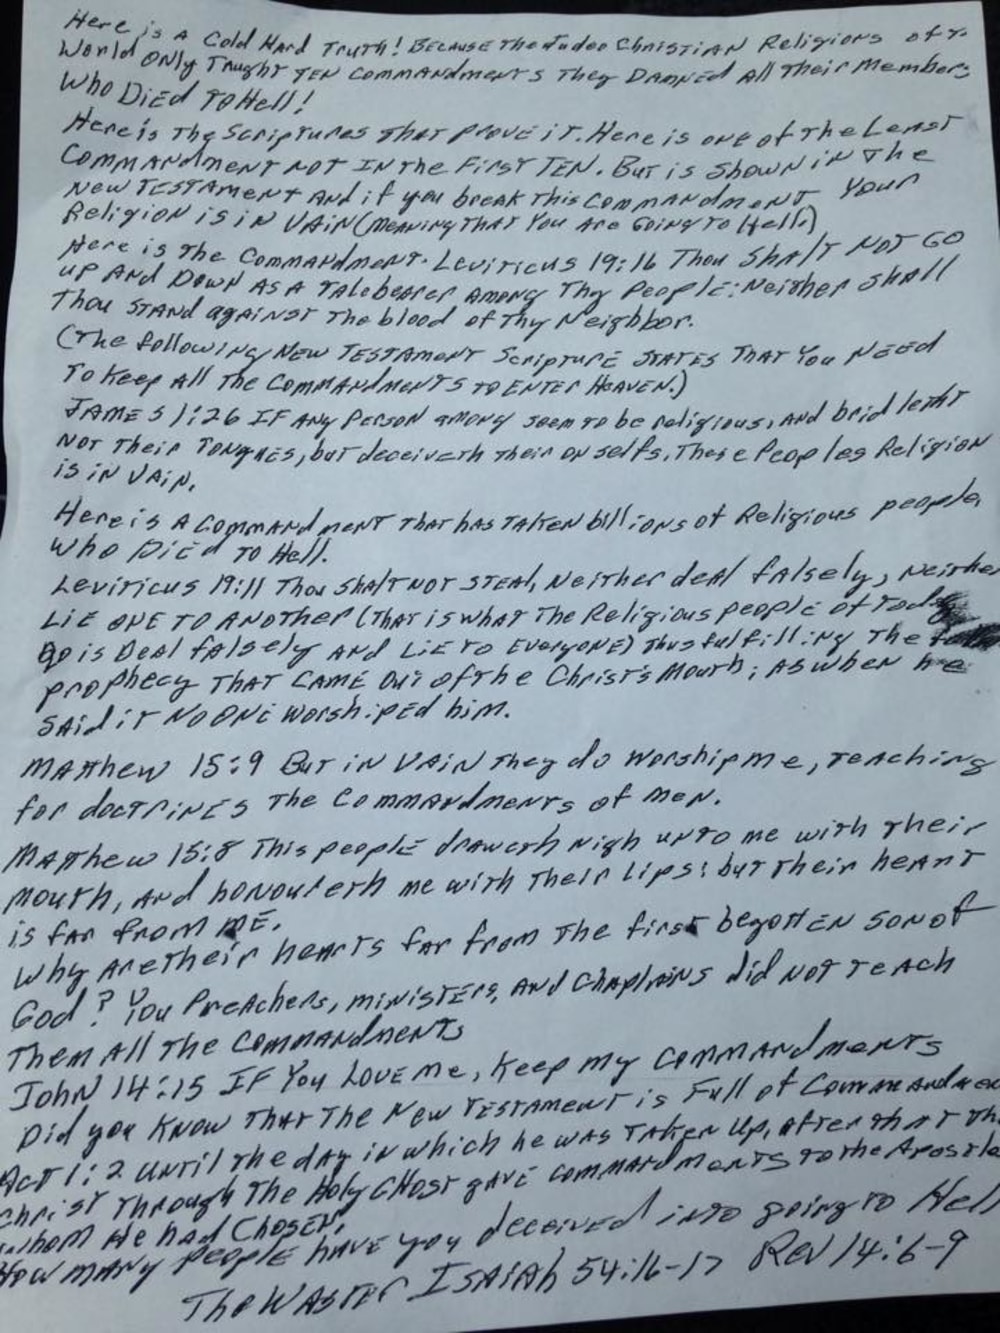 Here is A Cold Hard Truth! Because The Judeo Christian Religions of
World Only Taught Ten Commandments They Damned All Their Members
Who Died To Hell!
Here is The Scriptures That prove it. Here is one of The Least
Commandment not In The First Ten. But is Shown in The
New Testament And if you break This Commandment Your
Religion is in Vain (Meaning That You Are Going To Hell)
Here is The Commandment. Leviticus 19:16 Thou Shalt Not Go
up And Down As a Talebearer Among Thy People: Neither Shall
Thou Stand against The blood of Thy Neighbor.
(The following New Testament Scripture States That You Need
To Keep All The Commandments To Enter Heaven.)
James 1:26 If Any Person among seem to be religious, And bridleth
Not Their Tongues, but deceiveth their own selfs, These Peoples Religion
is in Vain.
Here is A Commandment That has Taken billions of Religious people,
Who Died To Hell.
Leviticus 19:11 Thou Shalt Not Steal, Neither deal falsely, Neither
Lie one To Another (That is what The Religious people of Today
Do is Deal falsely And Lie To Everyone) Thus fulfilling The
prophecy That Came Out of The Christ's Mouth; As when he
Said it No One Worshiped him.
Matthew 15:9 But in Vain They do Worship me, Teaching
for doctrines The Commandments of Men.
Matthew 15:8 This people draweth nigh unto me with Their
Mouth, And honoureth me with Their Lips; but Their heart
is far from Me.
Why Are Their hearts far from The first begotten Son of
God? You Preachers, ministers, And Chaplains did not Teach
Them All The Commandments
John 14:15 If You Love me, Keep my Commandments
Did you Know That The New Testament is Full of
Act 1:2 Until The day in which he was Taken Up, after That
Christ Through The Holy Ghost gave Commandments To the
Whom He had Chosen.
How many people have you deceived into going to Hell
The Waster Isaiah 54:16-17 Rev 14:6-9